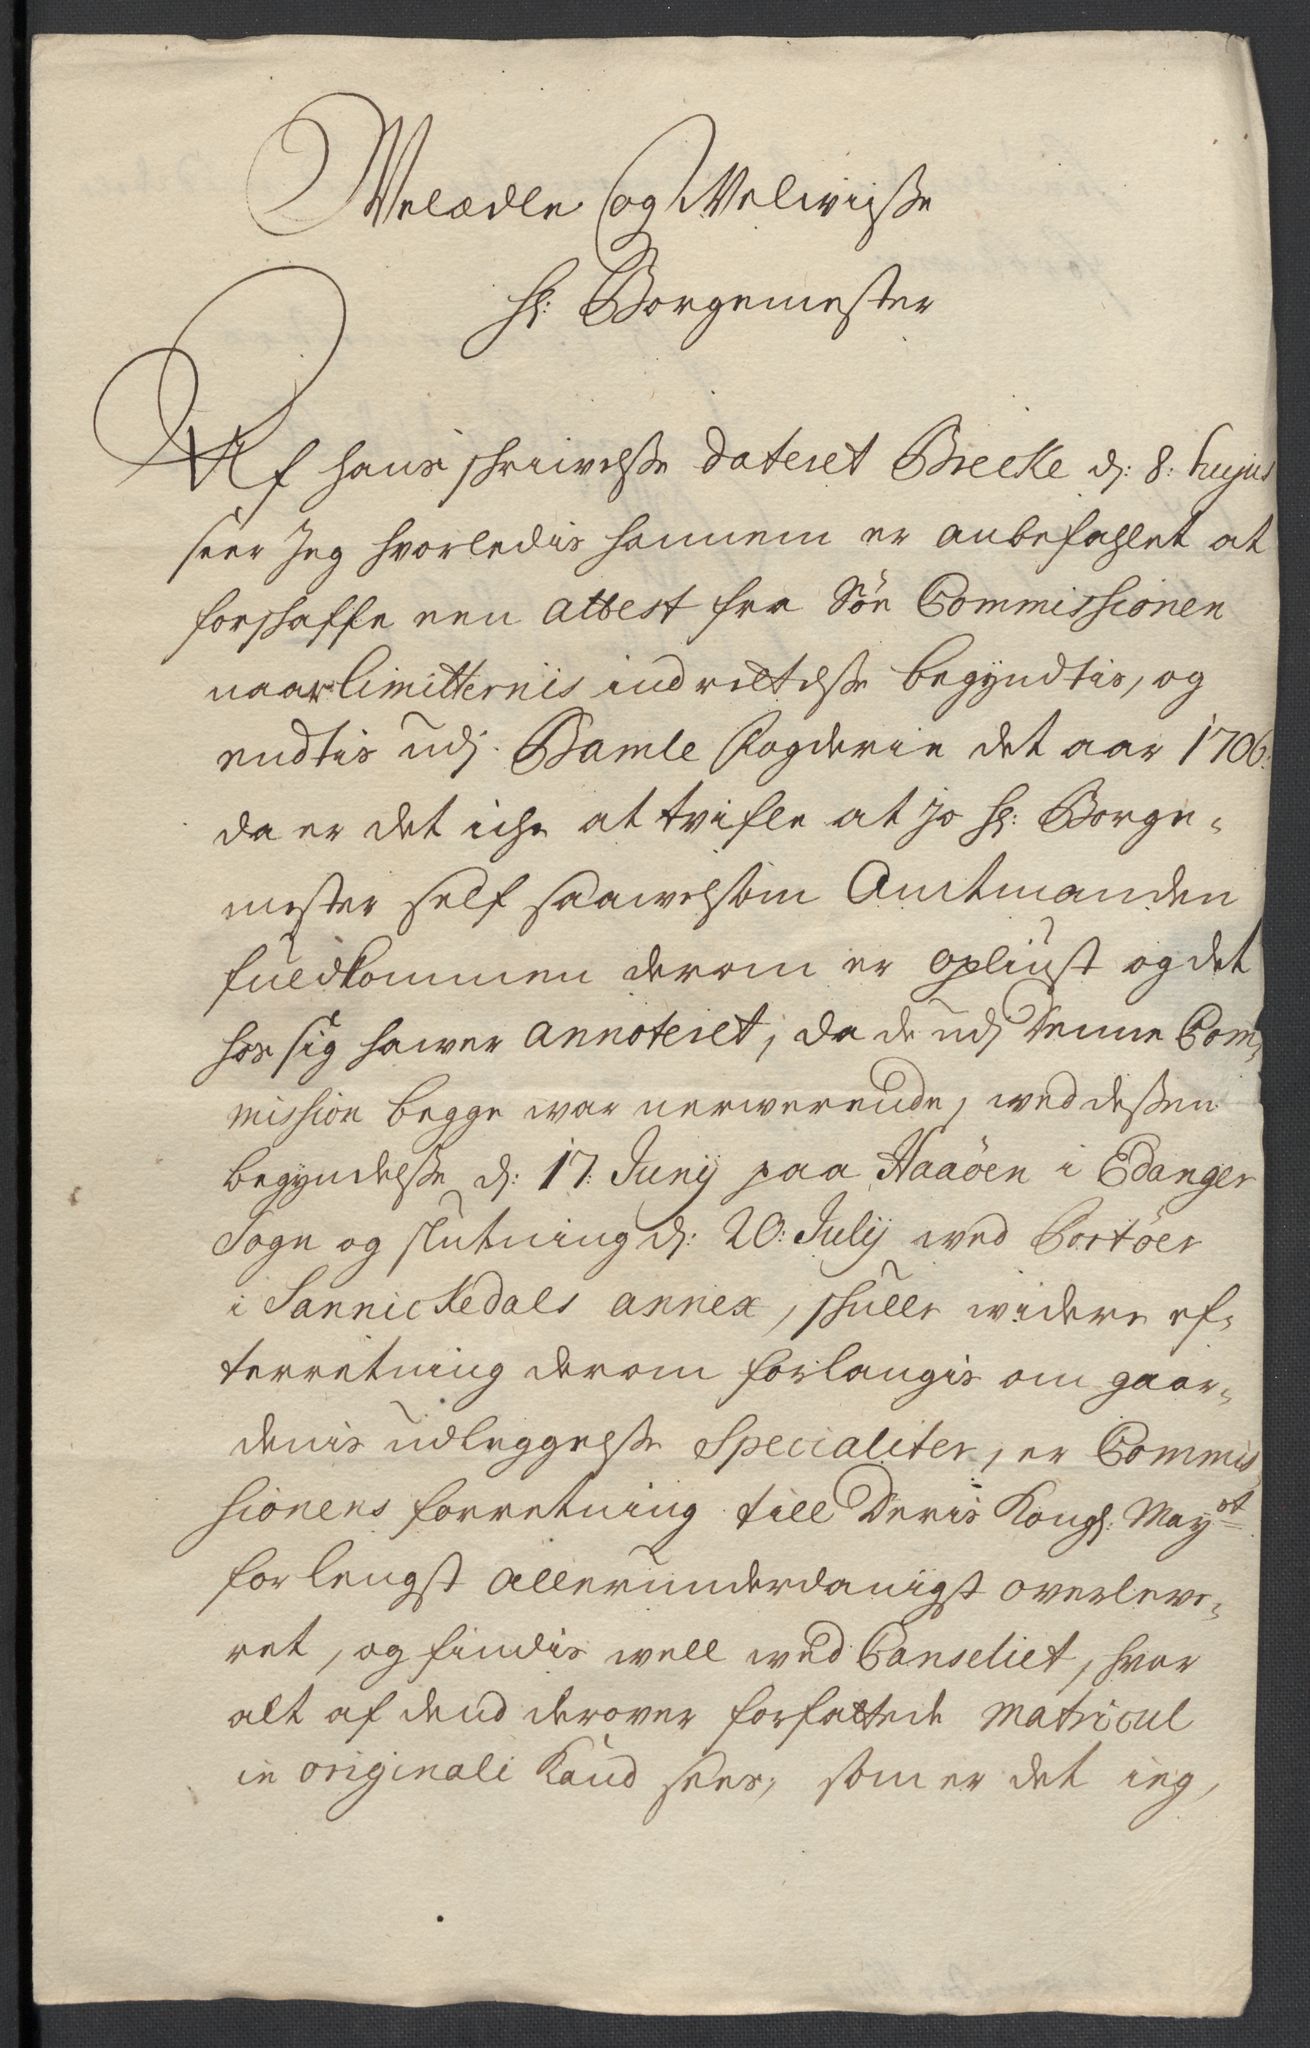 Welædle og Welwiisse
Hr: Borgemester
Af hans schrivelsse dateret Brecke d: 8: hujus
seer Jeg hvorledis hannem er anbefahlet at
forschaffe een attest fra Söe Commissionen
naar limitternis indrettelsse begyndtis, og
endtis udj Bamle fogderie det aar 1706:
da er det iche at tvifle at jo Hr: Borge,,
mester self saawelsom Amtmanden
fuldkommen derom er opliust og det
hos sig hawer annoteret, da de udj denne Com,,
mission begge war nerwerende, wed dessen
begyndelsse d: 17: Junij paa Haaöen i Edanger
Sogn og slutning d: 20: Julij wed Portöer
i Sannickedals annex, schulle widere ef,,
terretning derom forlangis om gaar,,
denis udleggelsse Specialiter, er Commis
sionens forretning till Deris Kongl: Mayst
forlengst allerunderdanigst overlewe,,
ret, og findis well wed Canseliet, hvor
alt af dend derover forfattede Matricul
in originali kand sees, som er det ieg,